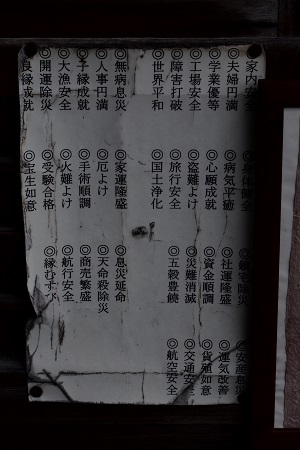 ◎家内安全 ◎身体健全 ◎ 除災 ◎安産息災
◎夫婦円満 ◎病気平癒 ◎社運隆盛 ◎運気改善
◎学業優等 ◎心願成就 ◎資金順調 ◎貨殖如意
◎工場安全 ◎盗難よけ ◎災難消滅 ◎交通安全
◎障害打破 ◎旅行安全 ◎五穀豊饒 ◎航空安全
◎世界平和 ◎国土浄化
◎無病息災 ◎家運隆盛 ◎息災延命
◎人事円満 ◎厄よけ ◎天命殺除災
◎子縁成就 ◎手術順調 ◎商売繁盛
◎大漁安全 ◎火難よけ ◎航行安全
◎開運除災 ◎受験合格 ◎縁むすび
良縁成就 ◎宝生如意